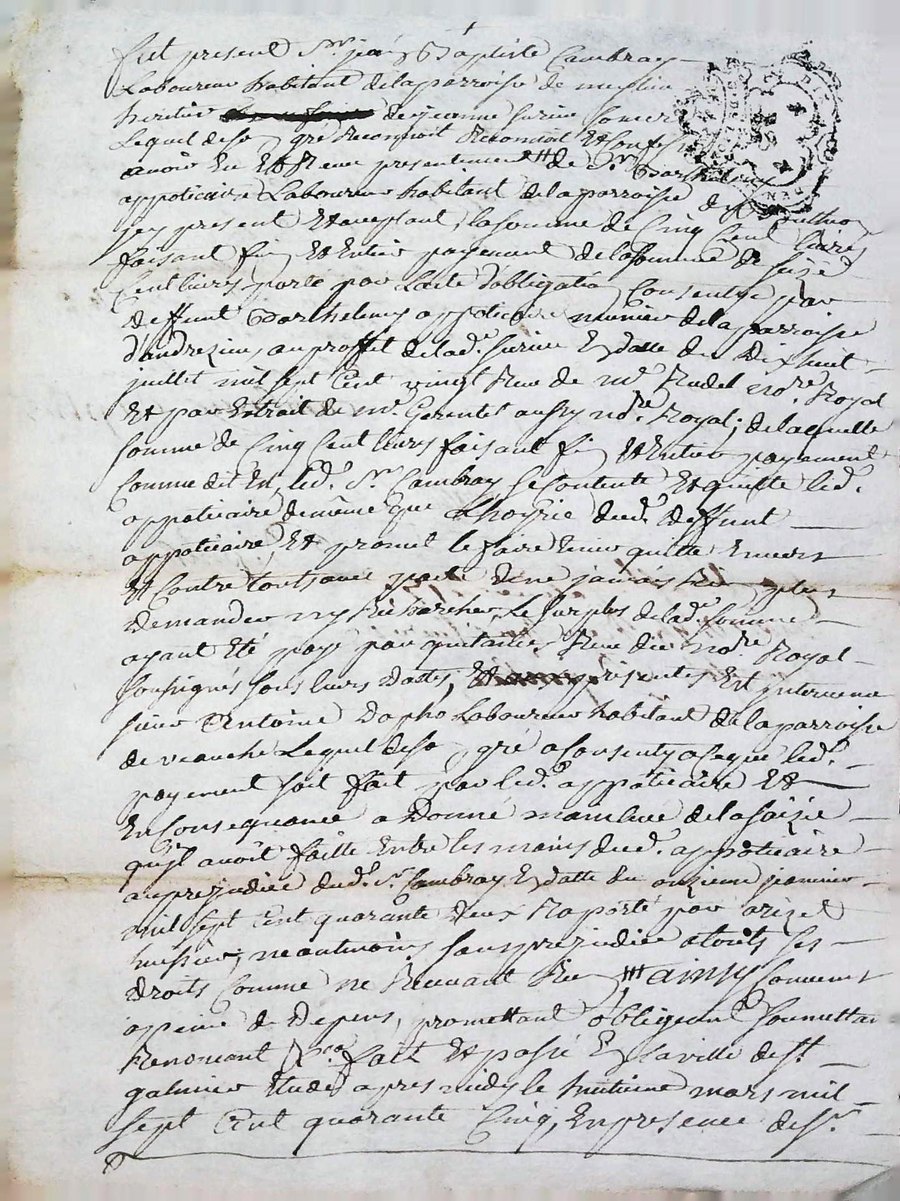 fut present Sr. jean Baptiste Cambray
Laboureur habitant de la parroisse de
heritier de jeanne surine
Lequel de son gré Reconnoit Reconnoit Et Confesse
avoir Eu Et Receu presentement de Sr. Barthelemy
appoticaire Laboureur habitant de la parroisse de St.
icy present Et aceptant, la somme de Cinq Cent Livres
faisant fin Et Entier payement de la somme de seize
Cent livres porté par Lacte d'obligation Consentye par
deffunt Barthelemy appoticaire meunier de la parroisse
d'andrezieux au proffet de lad.e surine En datte du dix huit
juillet mil sept Cent vingt Receu de me. Rudel no.re Royal
Et par Extrait de me. Gerentet aussy no.re Royal; de laquelle
somme de Cinq Cent livres faisant fin Et Entier payement
Comme dit Est, led.t Sr. Cambray se Contente Et quitte led.t
appoticaire de même que Lhoyrie dud.t deffunt
appoticaire, Et promet le faire tenir quitte Envers
Et Contre touts avec pacte de ne jamais Rien plus
demander ny Rechercher, Le surplus de lad.e somme
ayant Eté payé par quitances Receu du no.re Royal
soussigné sous leurs dattes, presentes Est intervenu
sieur Antoine Dapho Laboureur habitant de la parroisse
de veauche Lequel de son gré a Consenty a ce que led.t
payement soit fait par led.t appoticaire Et
En Consequance a donné mainlevé de la saizie
qu'il avoit faitte Entre les mains dud.t appoticaire
au prejudice dud.t Sr. Cambray En datte du onzieme janvier
mil sept Cent quarante deux Raporté par
huissier, neantmoins sans prejudice a touts ses
droits Comme ne Recevant Rien ainsy Convenu
a peine de Depens, promettant obligeant soumettant
Renonceant &ra fait Et passé En la ville de St.
galmier Etude apres midy le huitieme mars mil
sept Cent quarante Cinq, En presence de Sr.